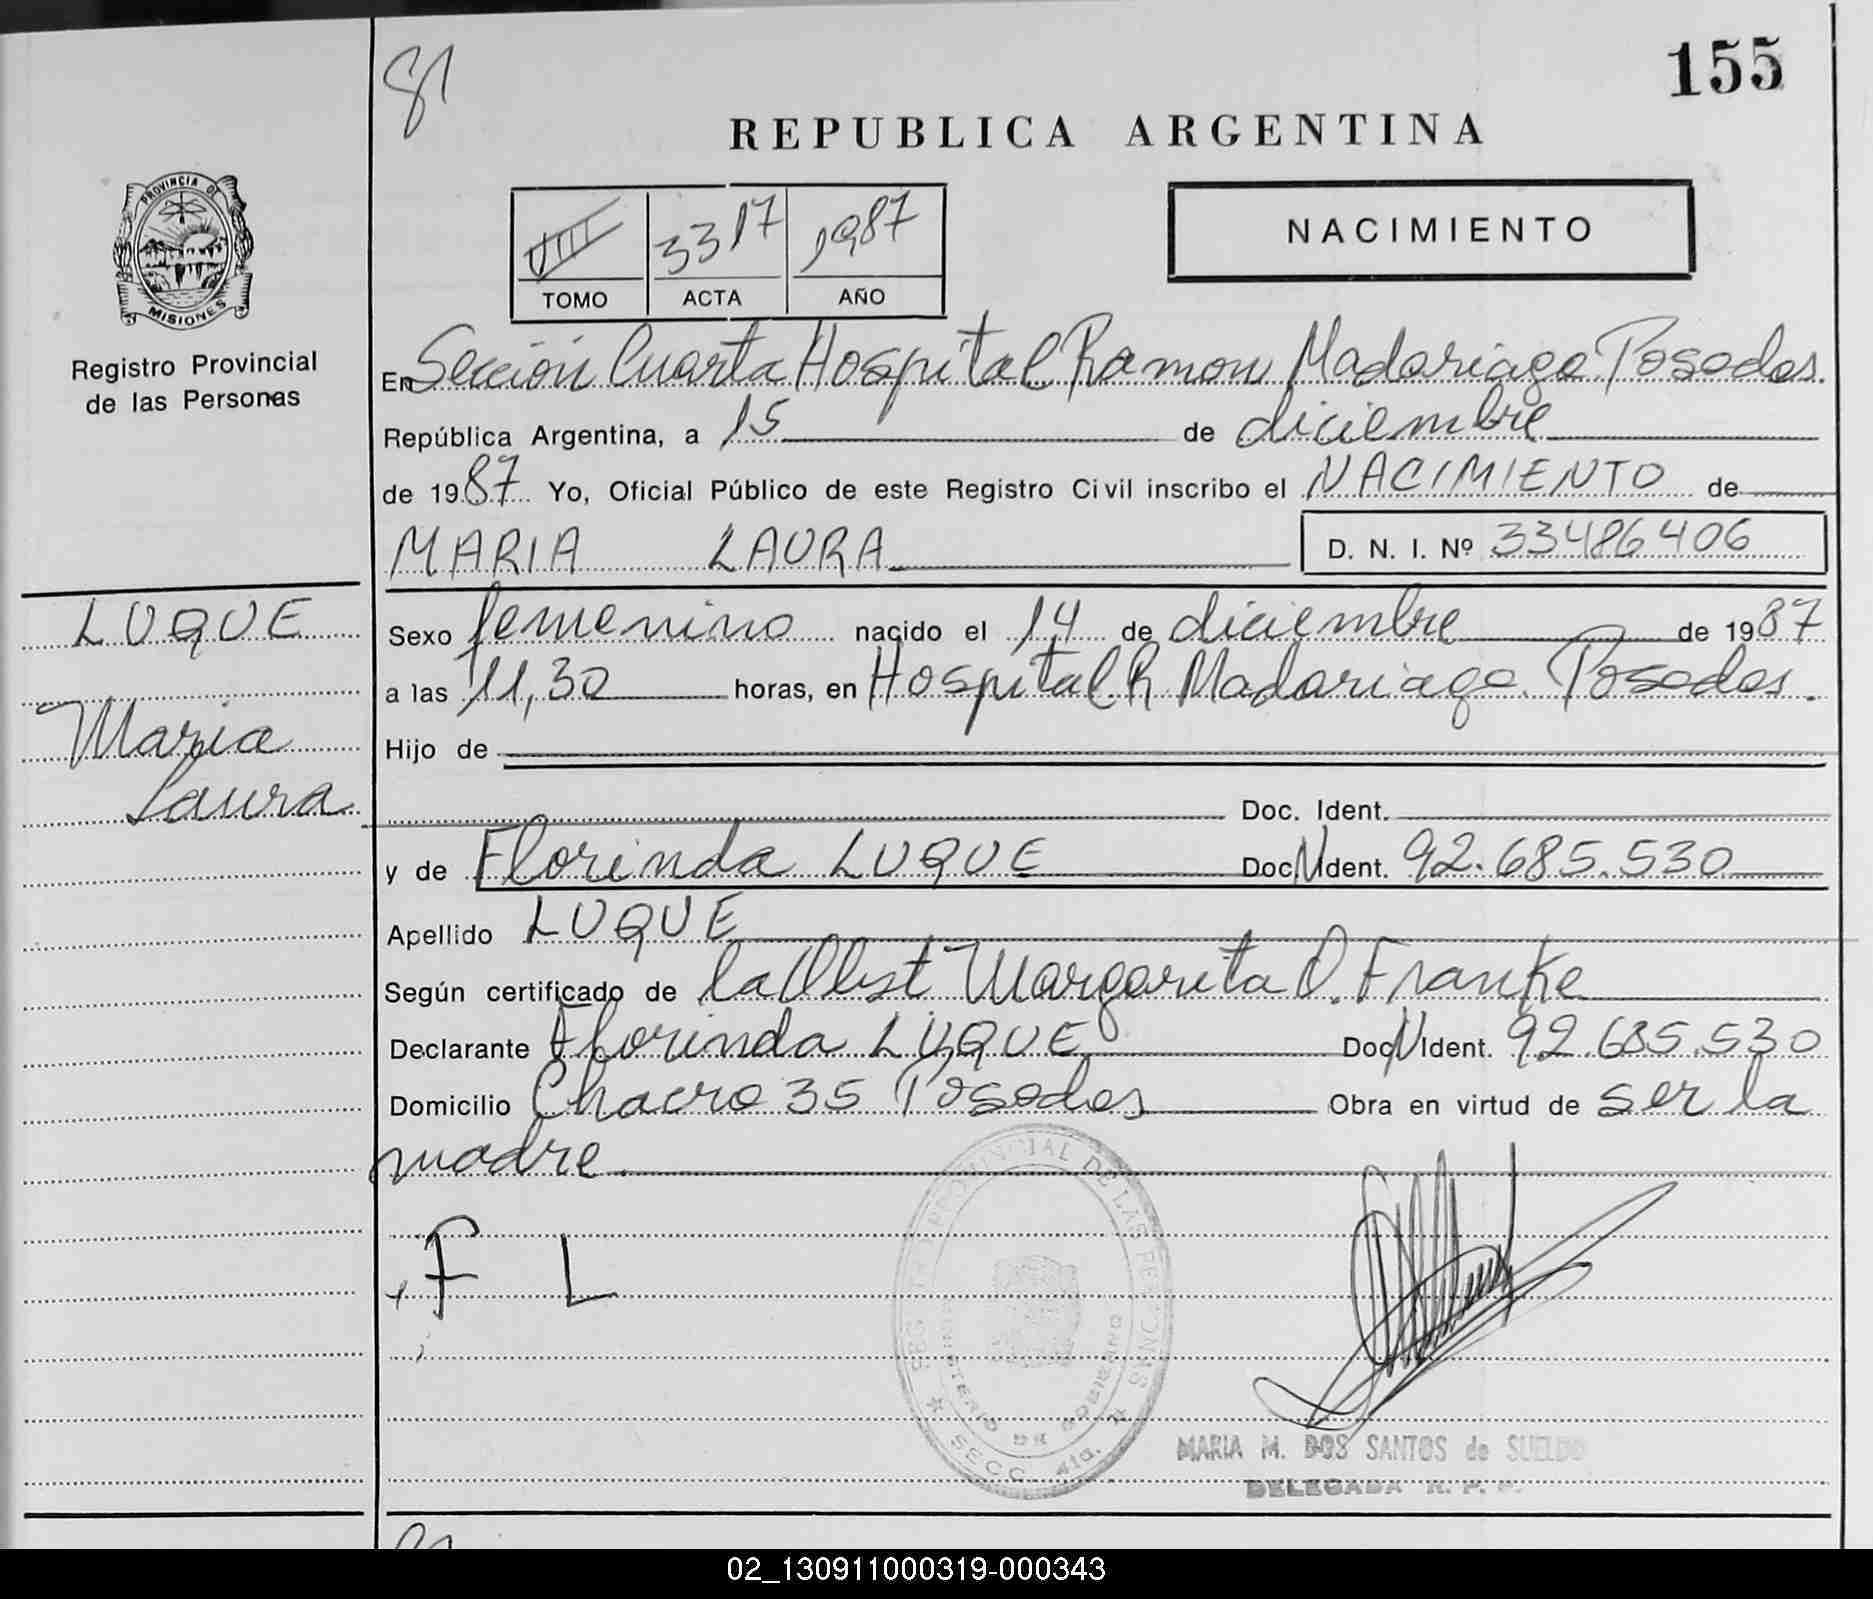 81
155
REPUBLICA ARGENTINA
PROVINCIA DE
MISIONES
Registro Provincial
de las Personas
VIII 3317 1987
TOMO ACTA AÑO
NACIMIENTO
En Sección Cuarta Hospital Ramon Madariaga Posadas.
República Argentina, a 15 de diciembre
de 1987 Yo, Oficial Público de este Registro Civil inscribo el NACIMIENTO de
MARIA LAURA D. N. I. Nº 33486406
LUQUE
Maria
Laura
Sexo femenino nacido el 14 de diciembre de 1987
a las 11,30 horas, en Hospital R Madariaga Posadas.
Hijo de
Doc. Ident.
y de Florinda LUQUE Doc N Ident. 92.685.530
Apellido LUQUE
Según certificado de la Obst Margarita O. Franke
Declarante Florinda LUQUE Doc N Ident. 92.685.530
Domicilio Chacra 35 Posadas Obra en virtud de ser la
madre.
F L
PROVINCIAL DE LAS PERSONAS
MINISTERIO DE GOBIERNO
SECC. 4ta.
MARIA M. DOS SANTOS de SUELDO
DELEGADA R. P. P.
02_130911000319-000343